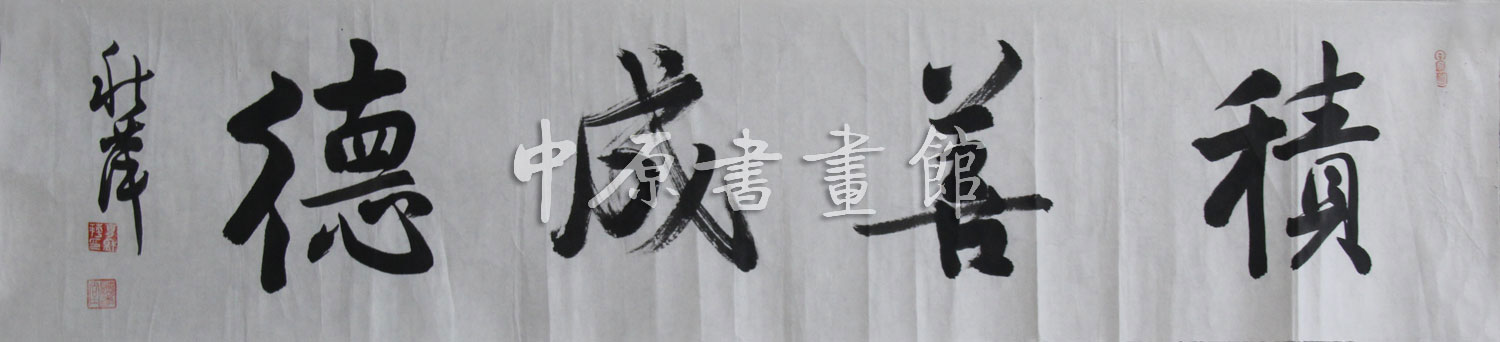 積善成德
中原書畫館